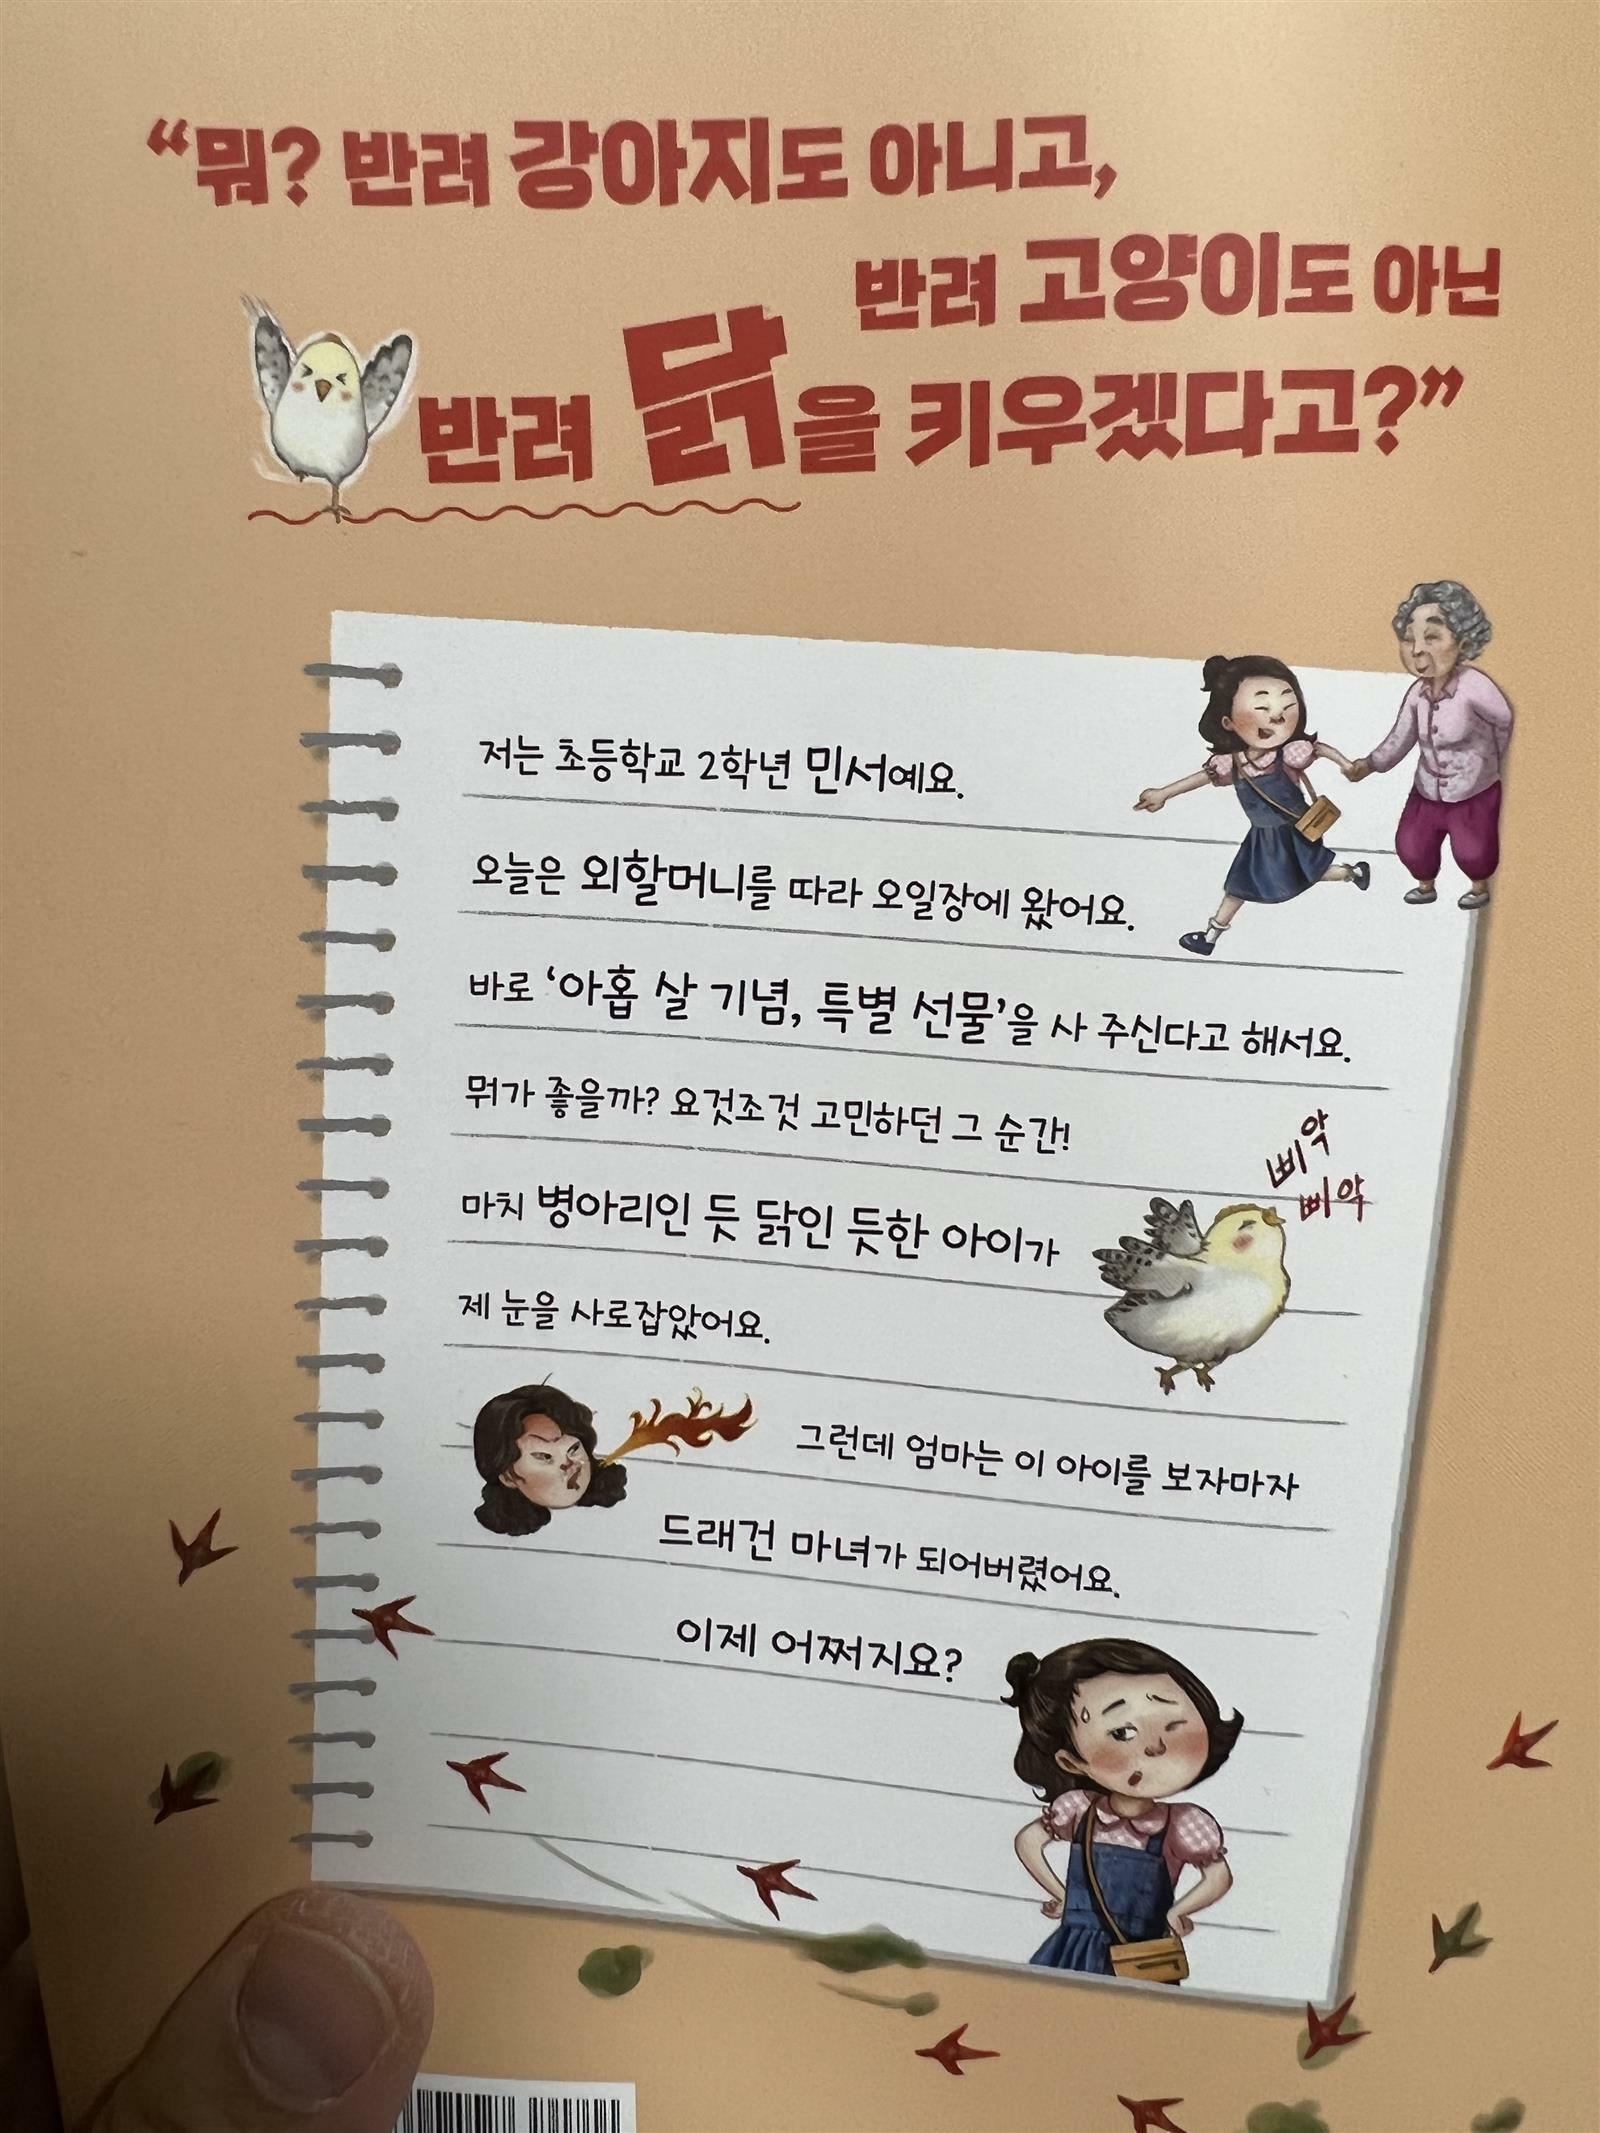 “뭐? 반려 강아지도 아니고,
반려 고양이도 아닌
반려 닭을 키우겠다고?”
저는 초등학교 2학년 민서예요.
오늘은 외할머니를 따라 오일장에 왔어요.
바로 ‘아홉 살 기념, 특별 선물’을 사 주신다고 해서요.
뭐가 좋을까? 요것조것 고민하던 그 순간!
삐악
삐악
마치 병아리인 듯 닭인 듯한 아이가
제 눈을 사로잡았어요.
그런데 엄마는 이 아이를 보자마자
드래건 마녀가 되어버렸어요.
이제 어쩌지요?